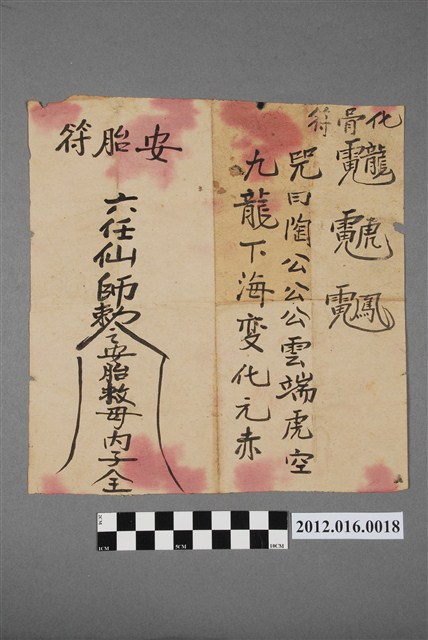 化骨符
咒曰陶公公公雲端虎空
九龍下海変化元赤
安胎符
六任仙師勅令安胎救母内子全
2012.016.0018
1CM 5CM 10CM